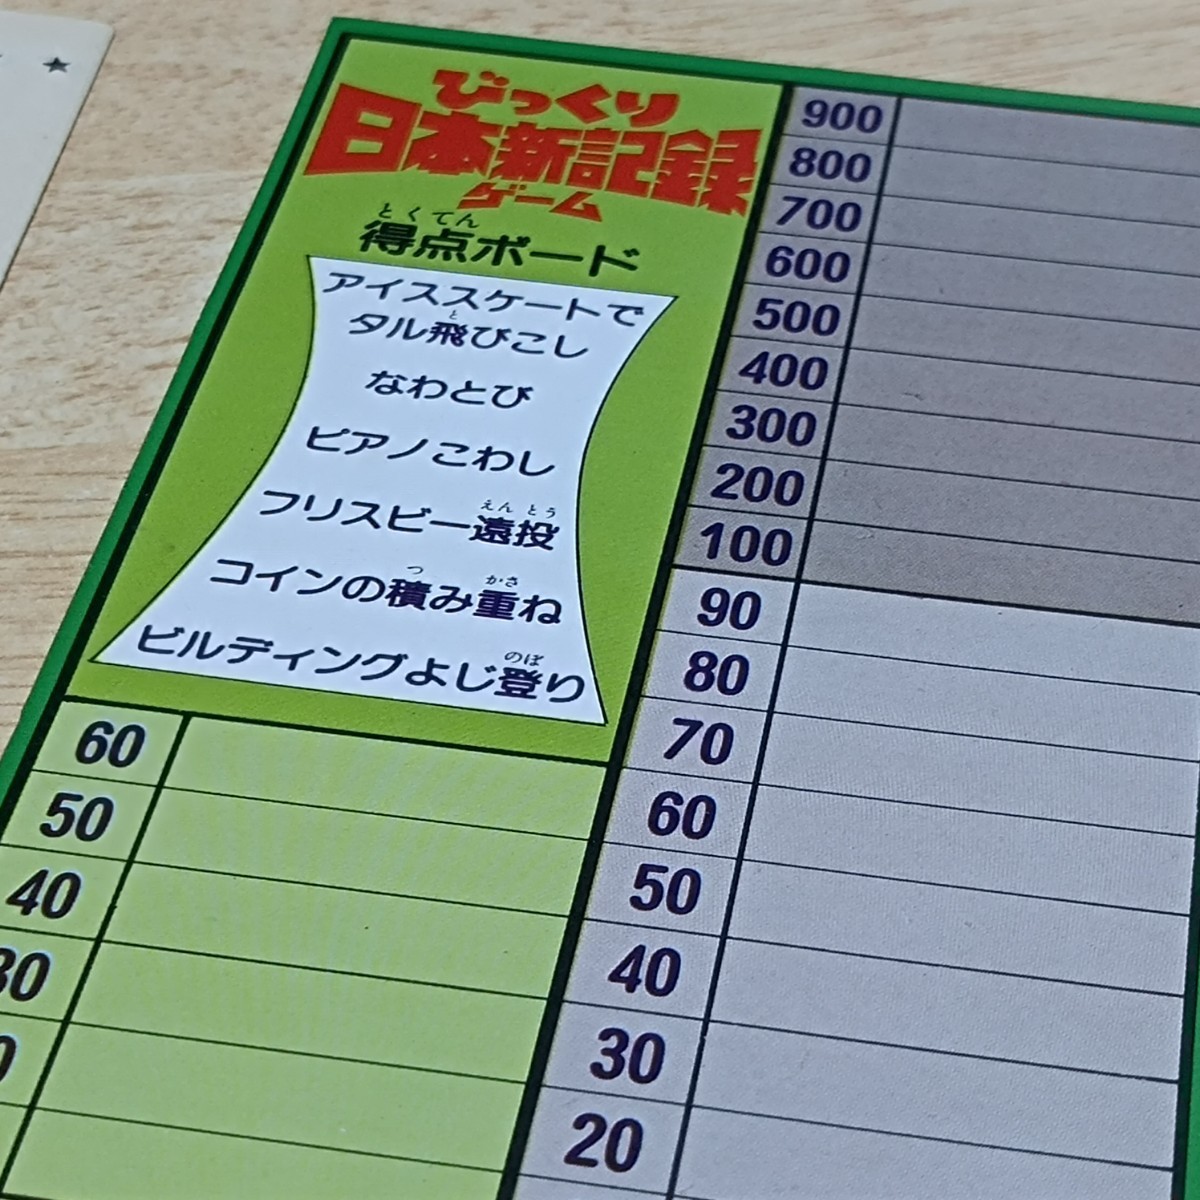 びっくり
日本新記録
ゲーム
とくてん
得点ボード
アイススケートで
と
タル飛びこし
なわとび
ピアノこわし
えんとう
フリスビー遠投
つ かさ
コインの積み重ね
のぼ
ビルディングよじ登り
60
50
40
30
900
800
700
600
500
400
300
200
100
90
80
70
60
50
40
30
20